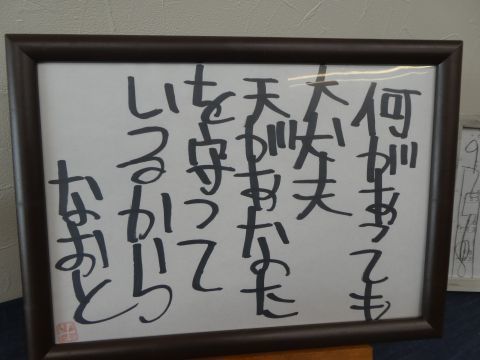 何があっても
大丈夫
天があなた
を守って
いるから
なおと